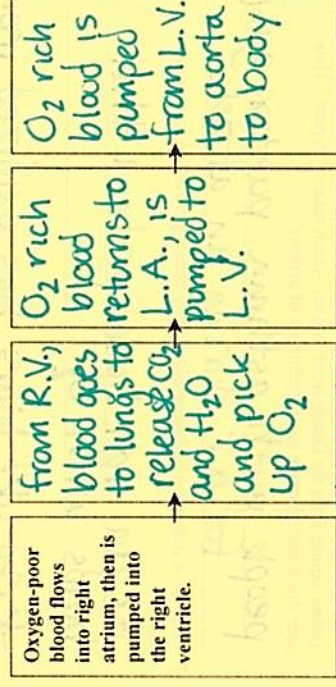 Oxygen-poor
blood flows
into right
atrium, then is
pumped into
the right
ventricle.
from R.V.,
blood goes
to lungs to
release CO₂
and H₂O
and pick
up O₂
O₂ rich
blood
returns to
L.A., is
pumped to
L.V.
O₂ rich
blood is
pumped
from L.V.
to aorta
to body